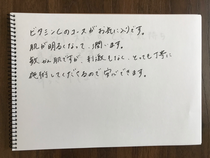 ビタシンCのコースがお気に入りです。
肌が明るくなって、潤います。
敏かん肌ですが、刺激もなく、とっても丁寧に
施術してくださるので安心できます。